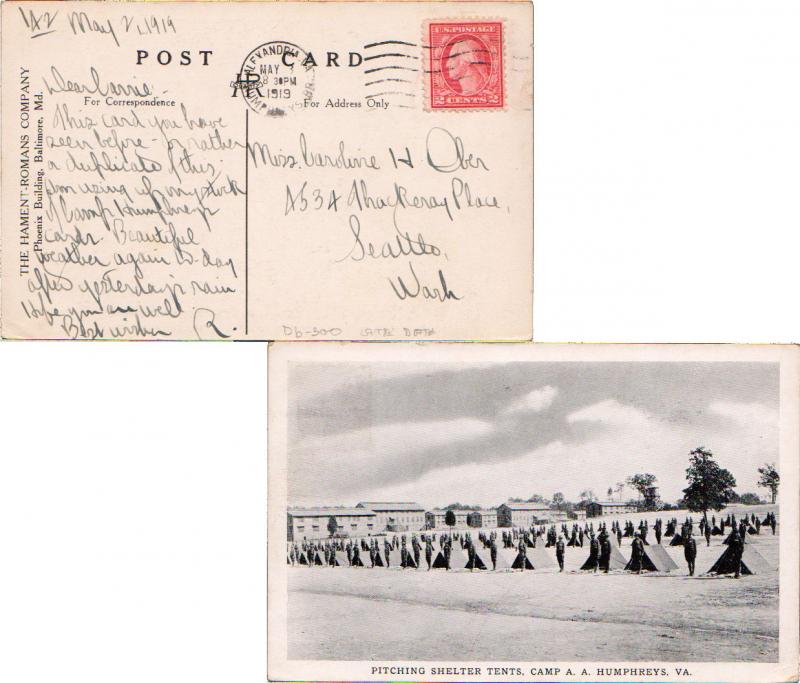 142 May 2, 1919
POST CARD
THE HAMENT-ROMANS COMPANY
Phoenix Building, Baltimore, Md.
For Correspondence
HR
For Address Only
ALEXANDRIA VA.
MAY
8 30 PM
1919
U.S. POSTAGE
2 CENTS 2
Dear Carrie -
This card you have
seen before - or rather
a duplicate of this.
Am using up my stock
of Camp Humphreys
cards. Beautiful
weather again to-day
after yesterday's rain
Hope you are well.
Best wishes R.
Miss. Caroline H Ober
4534 Thackeray Place,
Seattle,
Wash
Db-300 LATE DATE
PITCHING SHELTER TENTS, CAMP A. A. HUMPHREYS, VA.